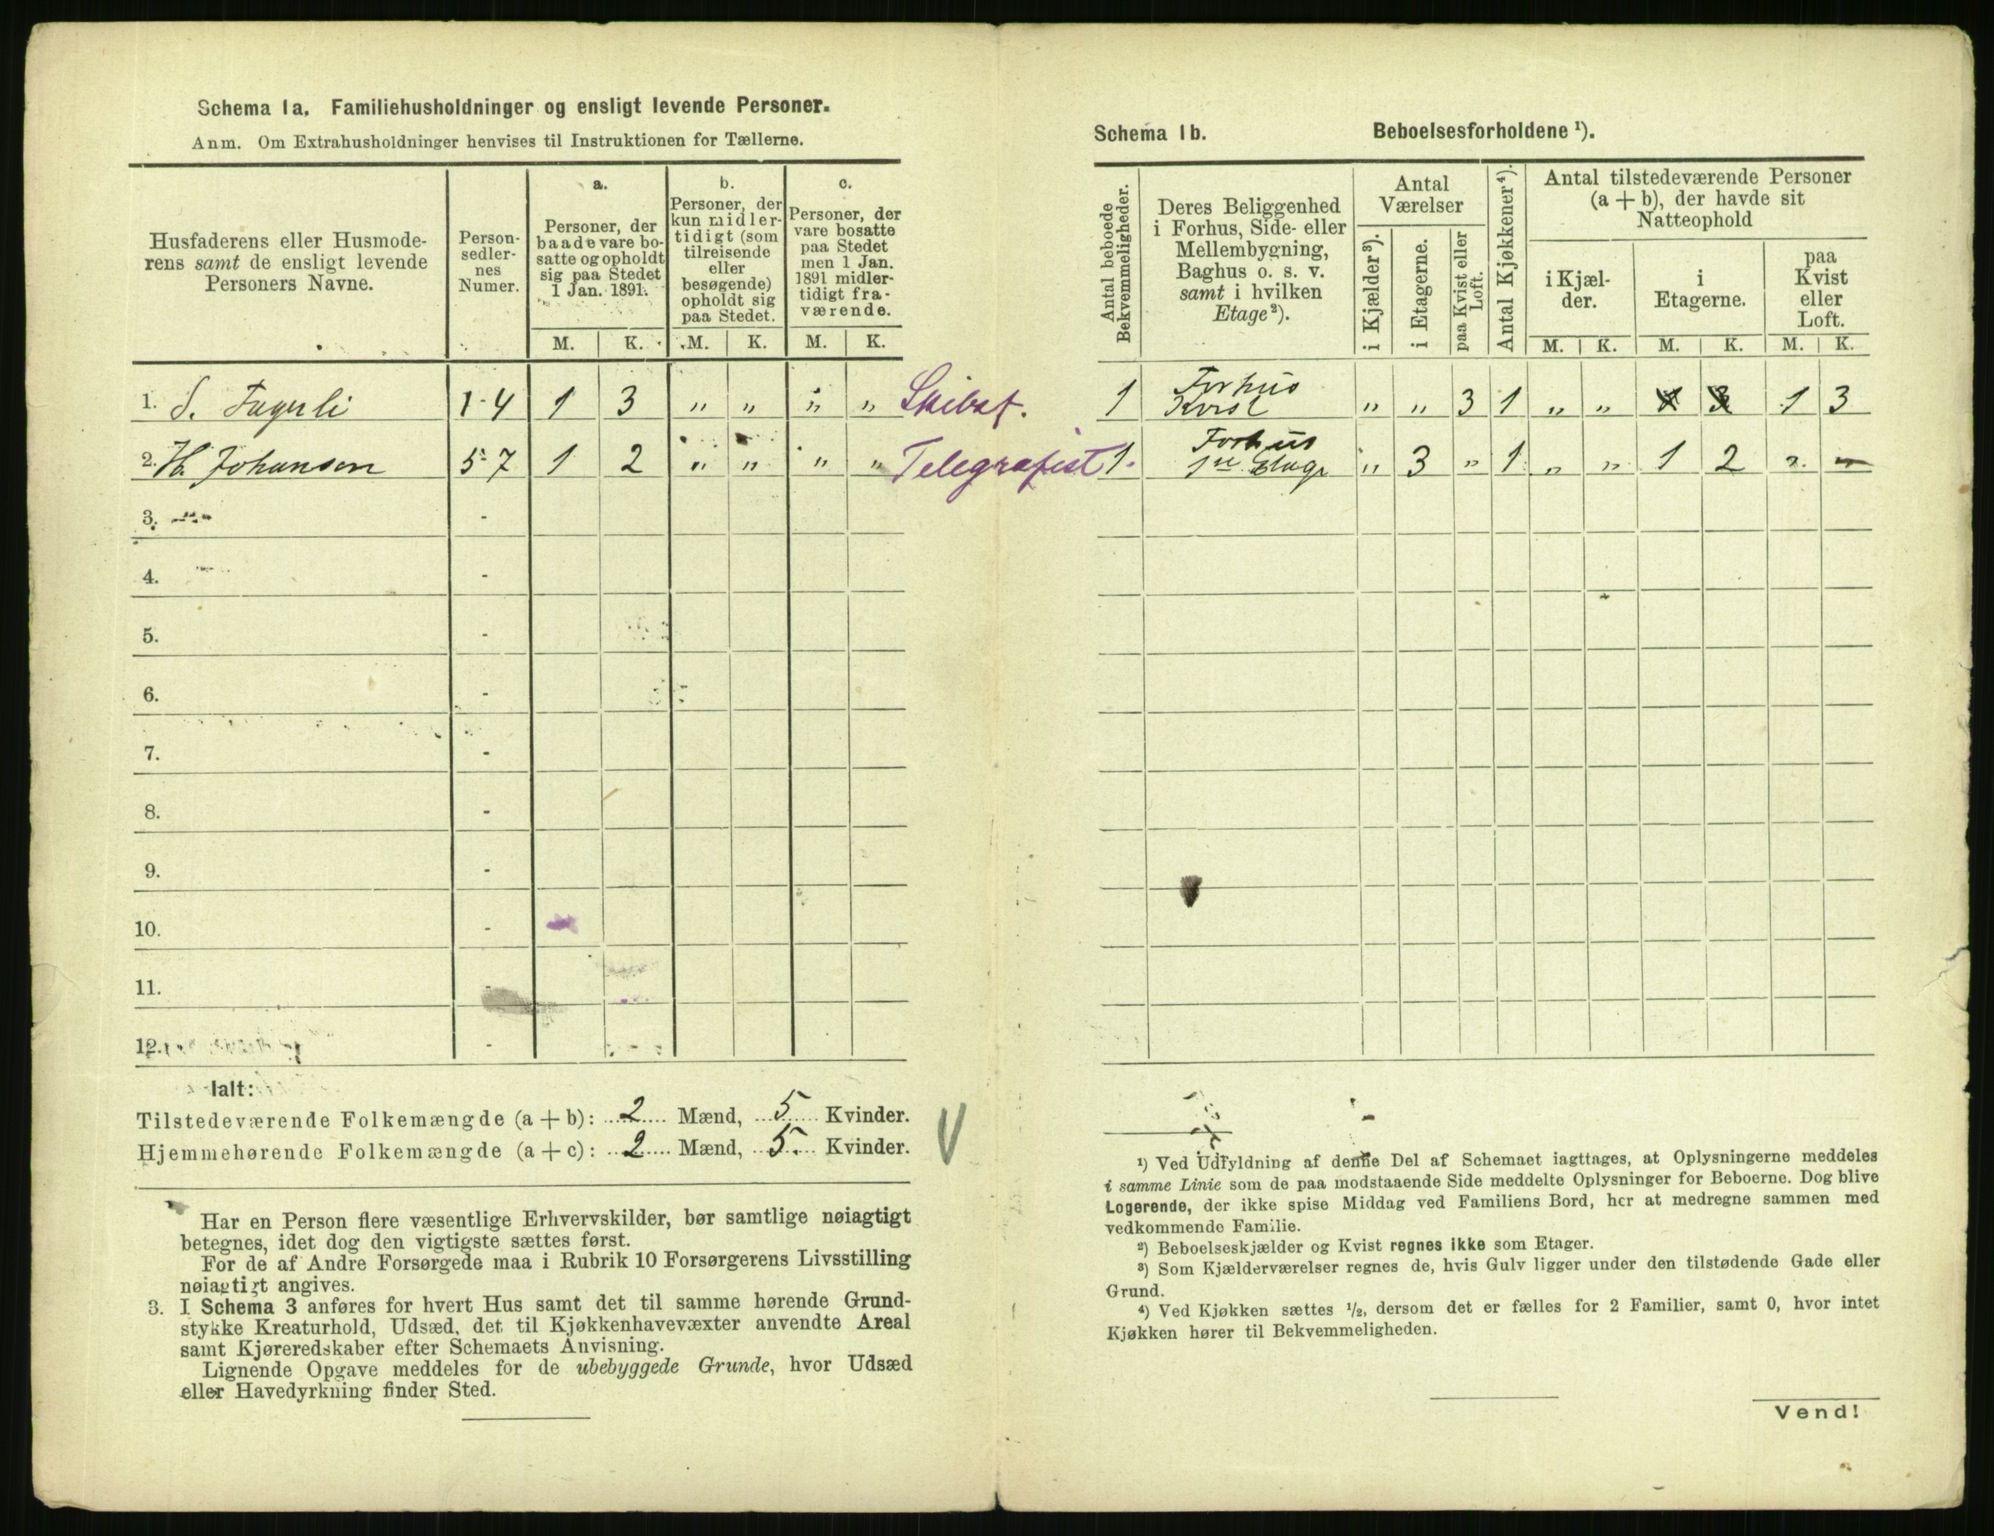 Schema 1a. Familiehusholdninger og ensligt levende Personer.
Anm. Om Extrahusholdninger henvises til Instruktionen for Tællerne.
Husfaderens eller Husmode-
rens samt de ensligt levende
Personers Navne.
Person-
sedler-
nes
Numer.
a.
Personer, der
baade vare bo-
satte og opholdt
sig paa Stedet
1 Jan. 1891.
b.
Personer, der
kun midler-
tidigt (som
tilreisende
eller
besøgende)
opholdt sig
paa Stedet.
c.
Personer, der
vare bosatte
paa Stedet
men 1 Jan.
1891 midler-
tidigt fra-
værende.
M. K. M. K. M. K.
1. S. Fagerli 1-4 1 3 " " " " Skibsf.
2. H. Johansen 5-7 1 2 " " " " Telegrafist
3. -
4. -
5. -
6. -
7. -
8. -
9. -
10. -
11. -
12. -
Ialt:
Tilstedeværende Folkemængde (a + b): 2 Mænd, 5 Kvinder.
Hjemmehørende Folkemængde (a + c): 2 Mænd, 5. Kvinder.
Har en Person flere væsentlige Erhvervskilder, bør samtlige nøiagtigt
betegnes, idet dog den vigtigste sættes først.
For de af Andre Forsørgede maa i Rubrik 10 Forsørgerens Livsstilling
nøiagtigt angives.
3. I Schema 3 anføres for hvert Hus samt det til samme hørende Grund-
stykke Kreaturhold, Udsæd, det til Kjøkkenhavevæxter anvendte Areal
samt Kjøreredskaber efter Schemaets Anvisning.
Lignende Opgave meddeles for de ubebyggede Grunde, hvor Udsæd
eller Havedyrkning finder Sted.
Schema 1b. Beboelsesforholdene ¹).
Antal beboede
Bekvemmeligheder.
Deres Beliggenhed
i Forhus, Side- eller
Mellembygning,
Baghus o. s. v.
samt i hvilken
Etage²).
Antal
Værelser
i Kjælder³).
i Etagerne.
paa Kvist eller
Loft.
Antal Kjøkkener⁴).
Antal tilstedeværende Personer
(a + b), der havde sit
Natteophold
i Kjæl-
der.
i
Etagerne.
paa
Kvist
eller
Loft.
M. K. M. K. M. K.
1 Forhus
Kvist " " 3 1 " " 1 3 1 3
1. Forhus
1ste Etage " 3 " 1 " " 1 2 " "
¹) Ved Udfyldning af denne Del af Schemaet iagttages, at Oplysningerne meddeles
i samme Linie som de paa modstaaende Side meddelte Oplysninger for Beboerne. Dog blive
Logerende, der ikke spise Middag ved Familiens Bord, her at medregne sammen med
vedkommende Familie.
²) Beboelseskjælder og Kvist regnes ikke som Etager.
³) Som Kjælderværelser regnes de, hvis Gulv ligger under den tilstødende Gade eller
Grund.
⁴) Ved Kjøkken sættes ½, dersom det er fælles for 2 Familier, samt 0, hvor intet
Kjøkken hører til Bekvemmeligheden.
Vend!